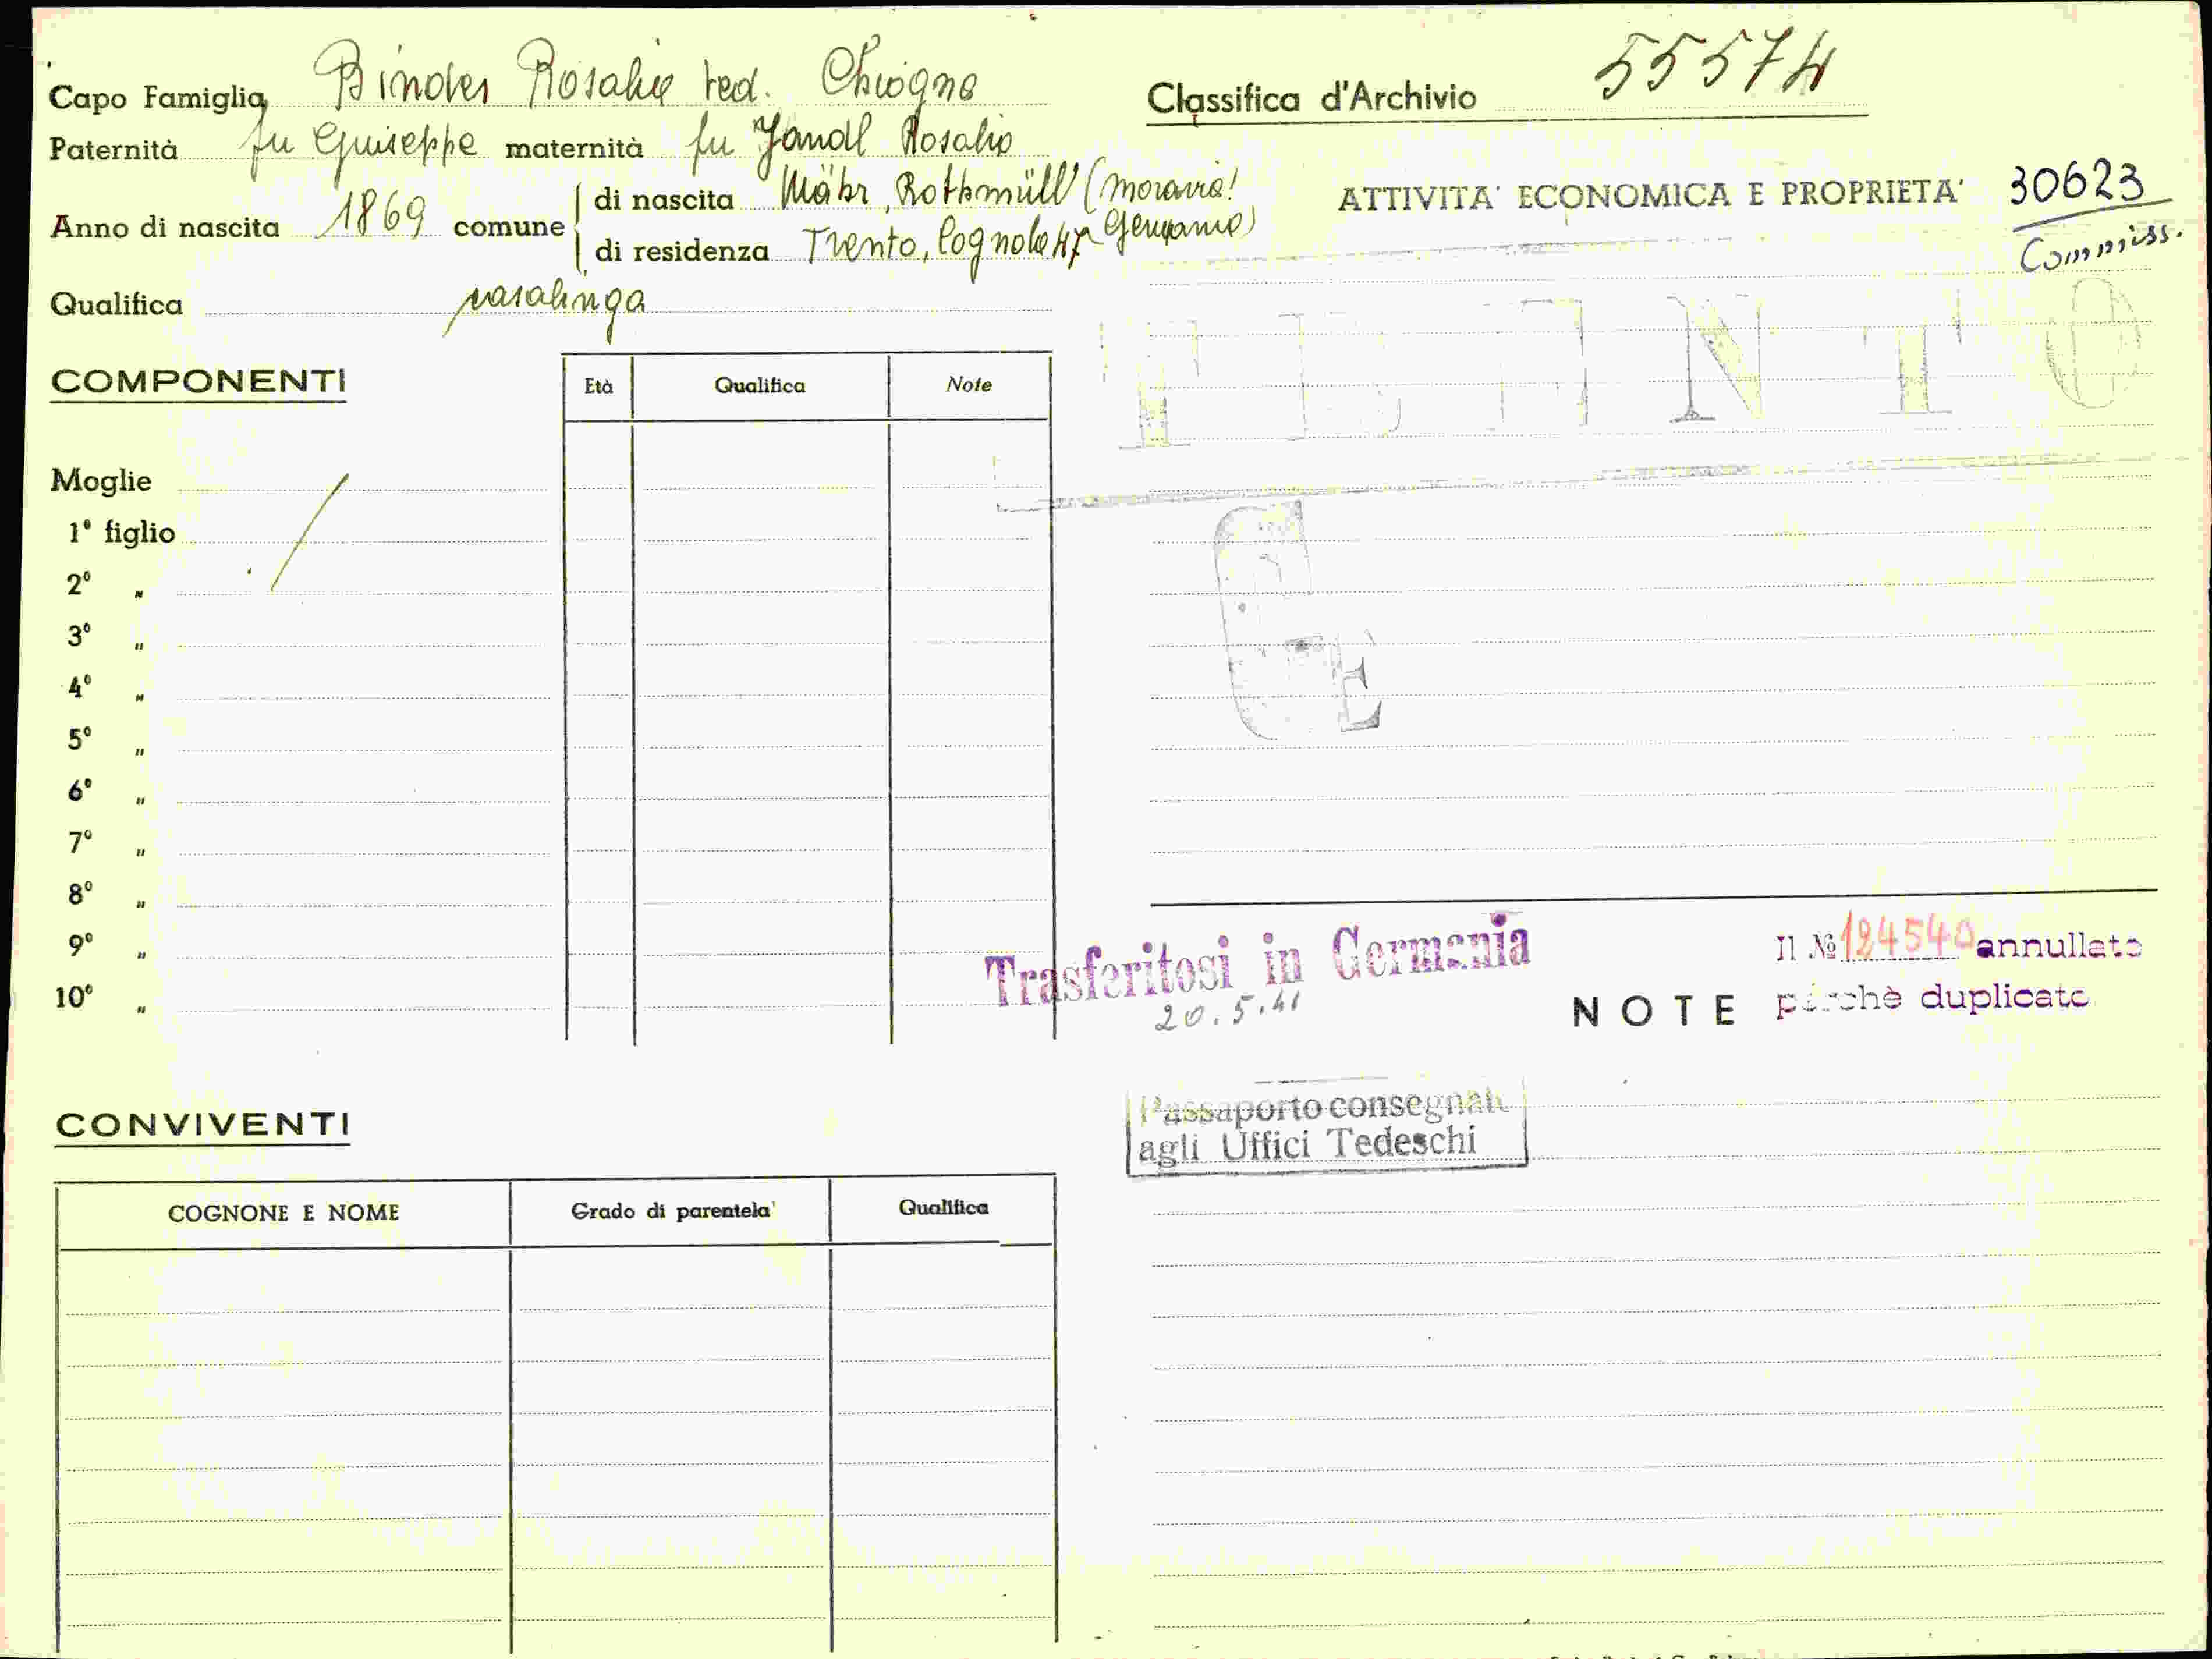 Capo Famiglia Binder Rosalia ved. Chiogna
Paternità fu Giuseppe maternità fu Jandl Rosalia
Anno di nascita 1869 comune
di nascita Mähr, Rothmüll (Moravia!
Germania)
di residenza Trento, Cognola 47
Qualifica casalinga
COMPONENTI
Età Qualifica Note
Moglie
1º figlio
2º "
3º "
4º "
5º "
6º "
7º "
8º "
9º "
10º "
CONVIVENTI
COGNONE E NOME Grado di parentela' Qualifica
Classifica d'Archivio 55574
ATTIVITA' ECONOMICA E PROPRIETA' 30623
Commiss.
TRENTO
Trasferitosi in Germania
20.5.41
Il № 124540 annullato
NOTE perchè duplicato
Passaporto consegnato
agli Uffici Tedeschi